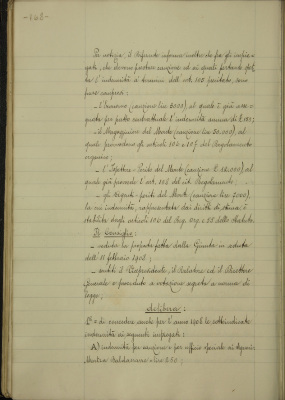 -148-
Per notizia, il Referendo informa inoltre che fra gli impie-
gati, che devono prestare cauzione ed ai quali
l'indennità a termini dell'art. 108 sono
pure compresi:
- l'Economo (cauzione lire 6000), al quale è già
per patto contrattuale l'indennità annua di £
- il Magazziniere del Monte (cauzione lire 30.000) al
quale provvedono gli articoli 106 e 107 del Regolamento
organico;
- l'Ispettore-Perito del Monte (cauzione £ 12.000), al
quale già provvede l'art. del cit. Regolamento;
- gli Reggenti-periti del Monte (cauzione lire 7000),
la cui indennità, rappresentata dai diritti di stima, è
stabilita dagli articoli 100 del Reg. Org. e 58 dello Statuto.
Il Consiglio:
- veduta la proposta fatta dalla Giunta in seduta
dell' 11 febbraio 1908;
- sentiti il Vicepresidente, il Relatore ed il Direttore
Generale e proceduto a votazione segreta a norma di
legge,
delibera:
1° di concedere anche per l'anno 1908 le sottoindicate
indennità ai seguenti impiegati:
A) indennità per cauzione e per ufficio speciale ai Signori:
Baldassarre - lire 250.